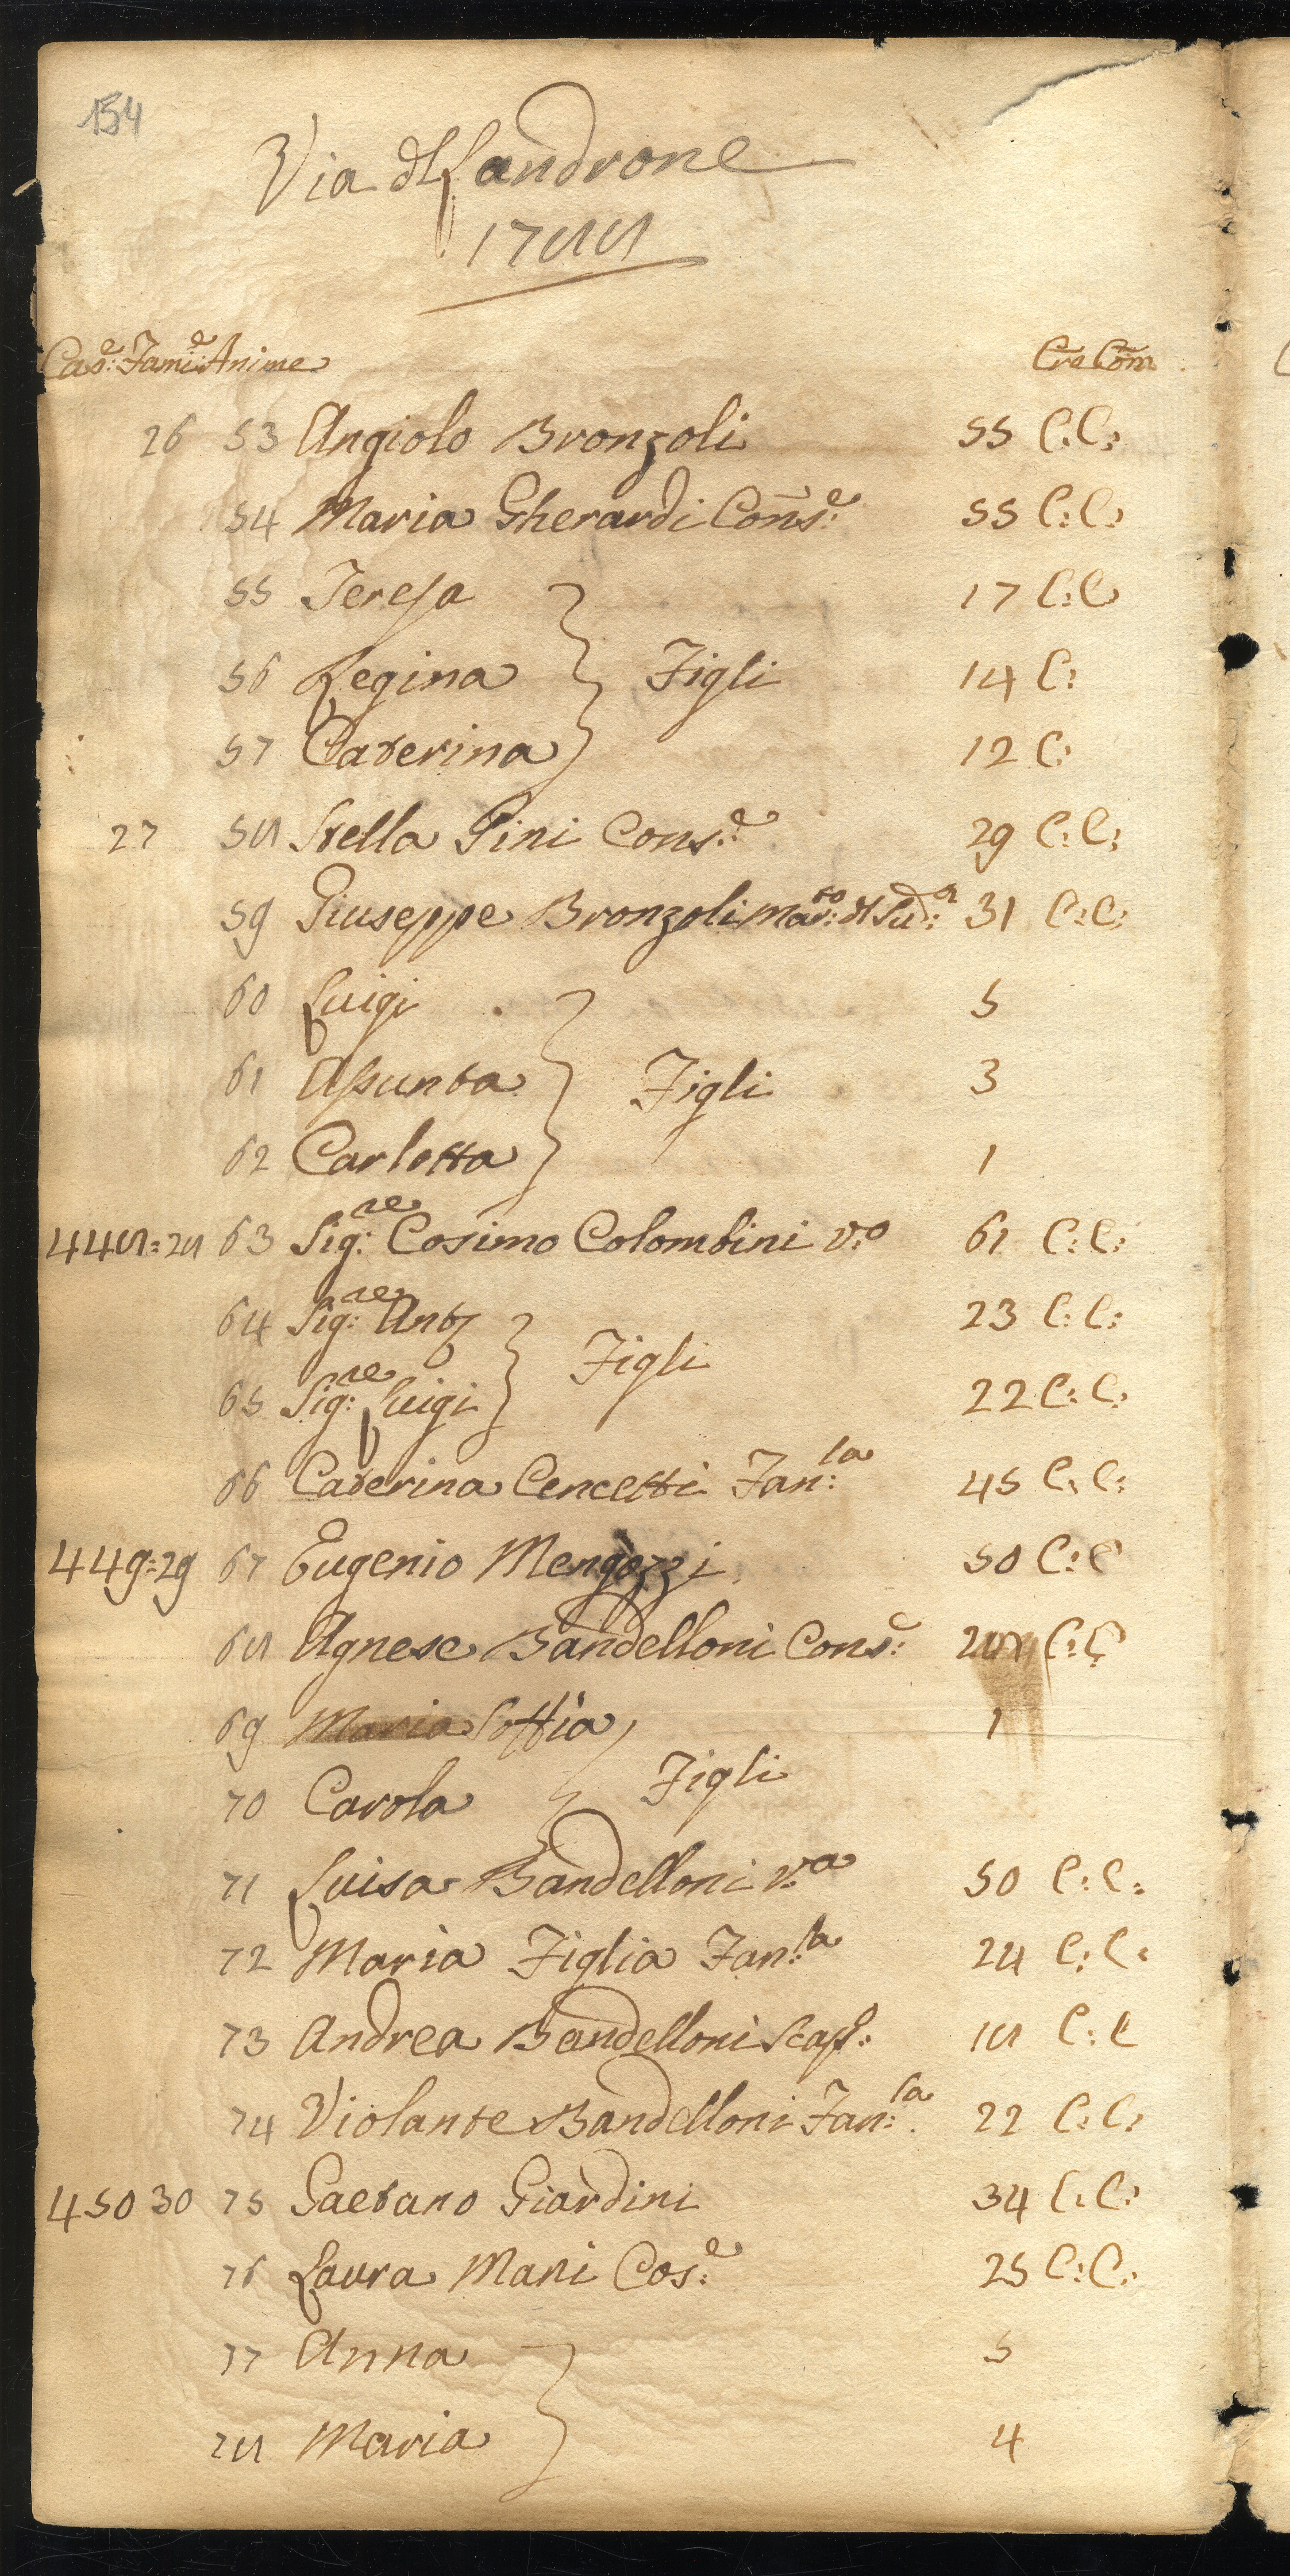 154
Via dl Landrone
1788
Cas:e Fami:e Anime Cre Com
26 53 Angiolo Bronzoli 55 C: C:
54 Maria Gherardi Cons:e 55 C: C:
55 Teresa 17 C: C
56 Regina Figli 14 C:
57 Caterina 12 C:
27 58 Stella Pini Cons:e 29 C: C:
59 Giuseppe Bronzoli Mar:to dl Sud:a 31 C: C:
60 Luigi 5
61 Assunta Figli 3
62 Carlotta 1
448 = 28 63 Sig:re Cosimo Colombini v:o 61 C: C:
64 Sig:re Anto 23 C: C:
Figli
65 Sig:re Luigi 22 C: C:
66 Caterina Cencetti Fan:la 45 C: C:
449 = 29 67 Eugenio Mengozzi 50 C: C
68 Agnese Bandelloni Cons:e C: C
69 Maria Soffia 1
Figli
70 Carola
71 Luisa Bandelloni v:a 50 C: C:
72 Maria Figlia Fan:la 24 C: C:
73 Andrea Bandelloni Scap:o 18 C: C
74 Violante Bandelloni Fan:la 22 C: C:
450 30 75 Gaetano Giardini 34 C: C:
76 Laura Mani Cos:e 25 C: C:
77 Anna 5
78 Maria 4